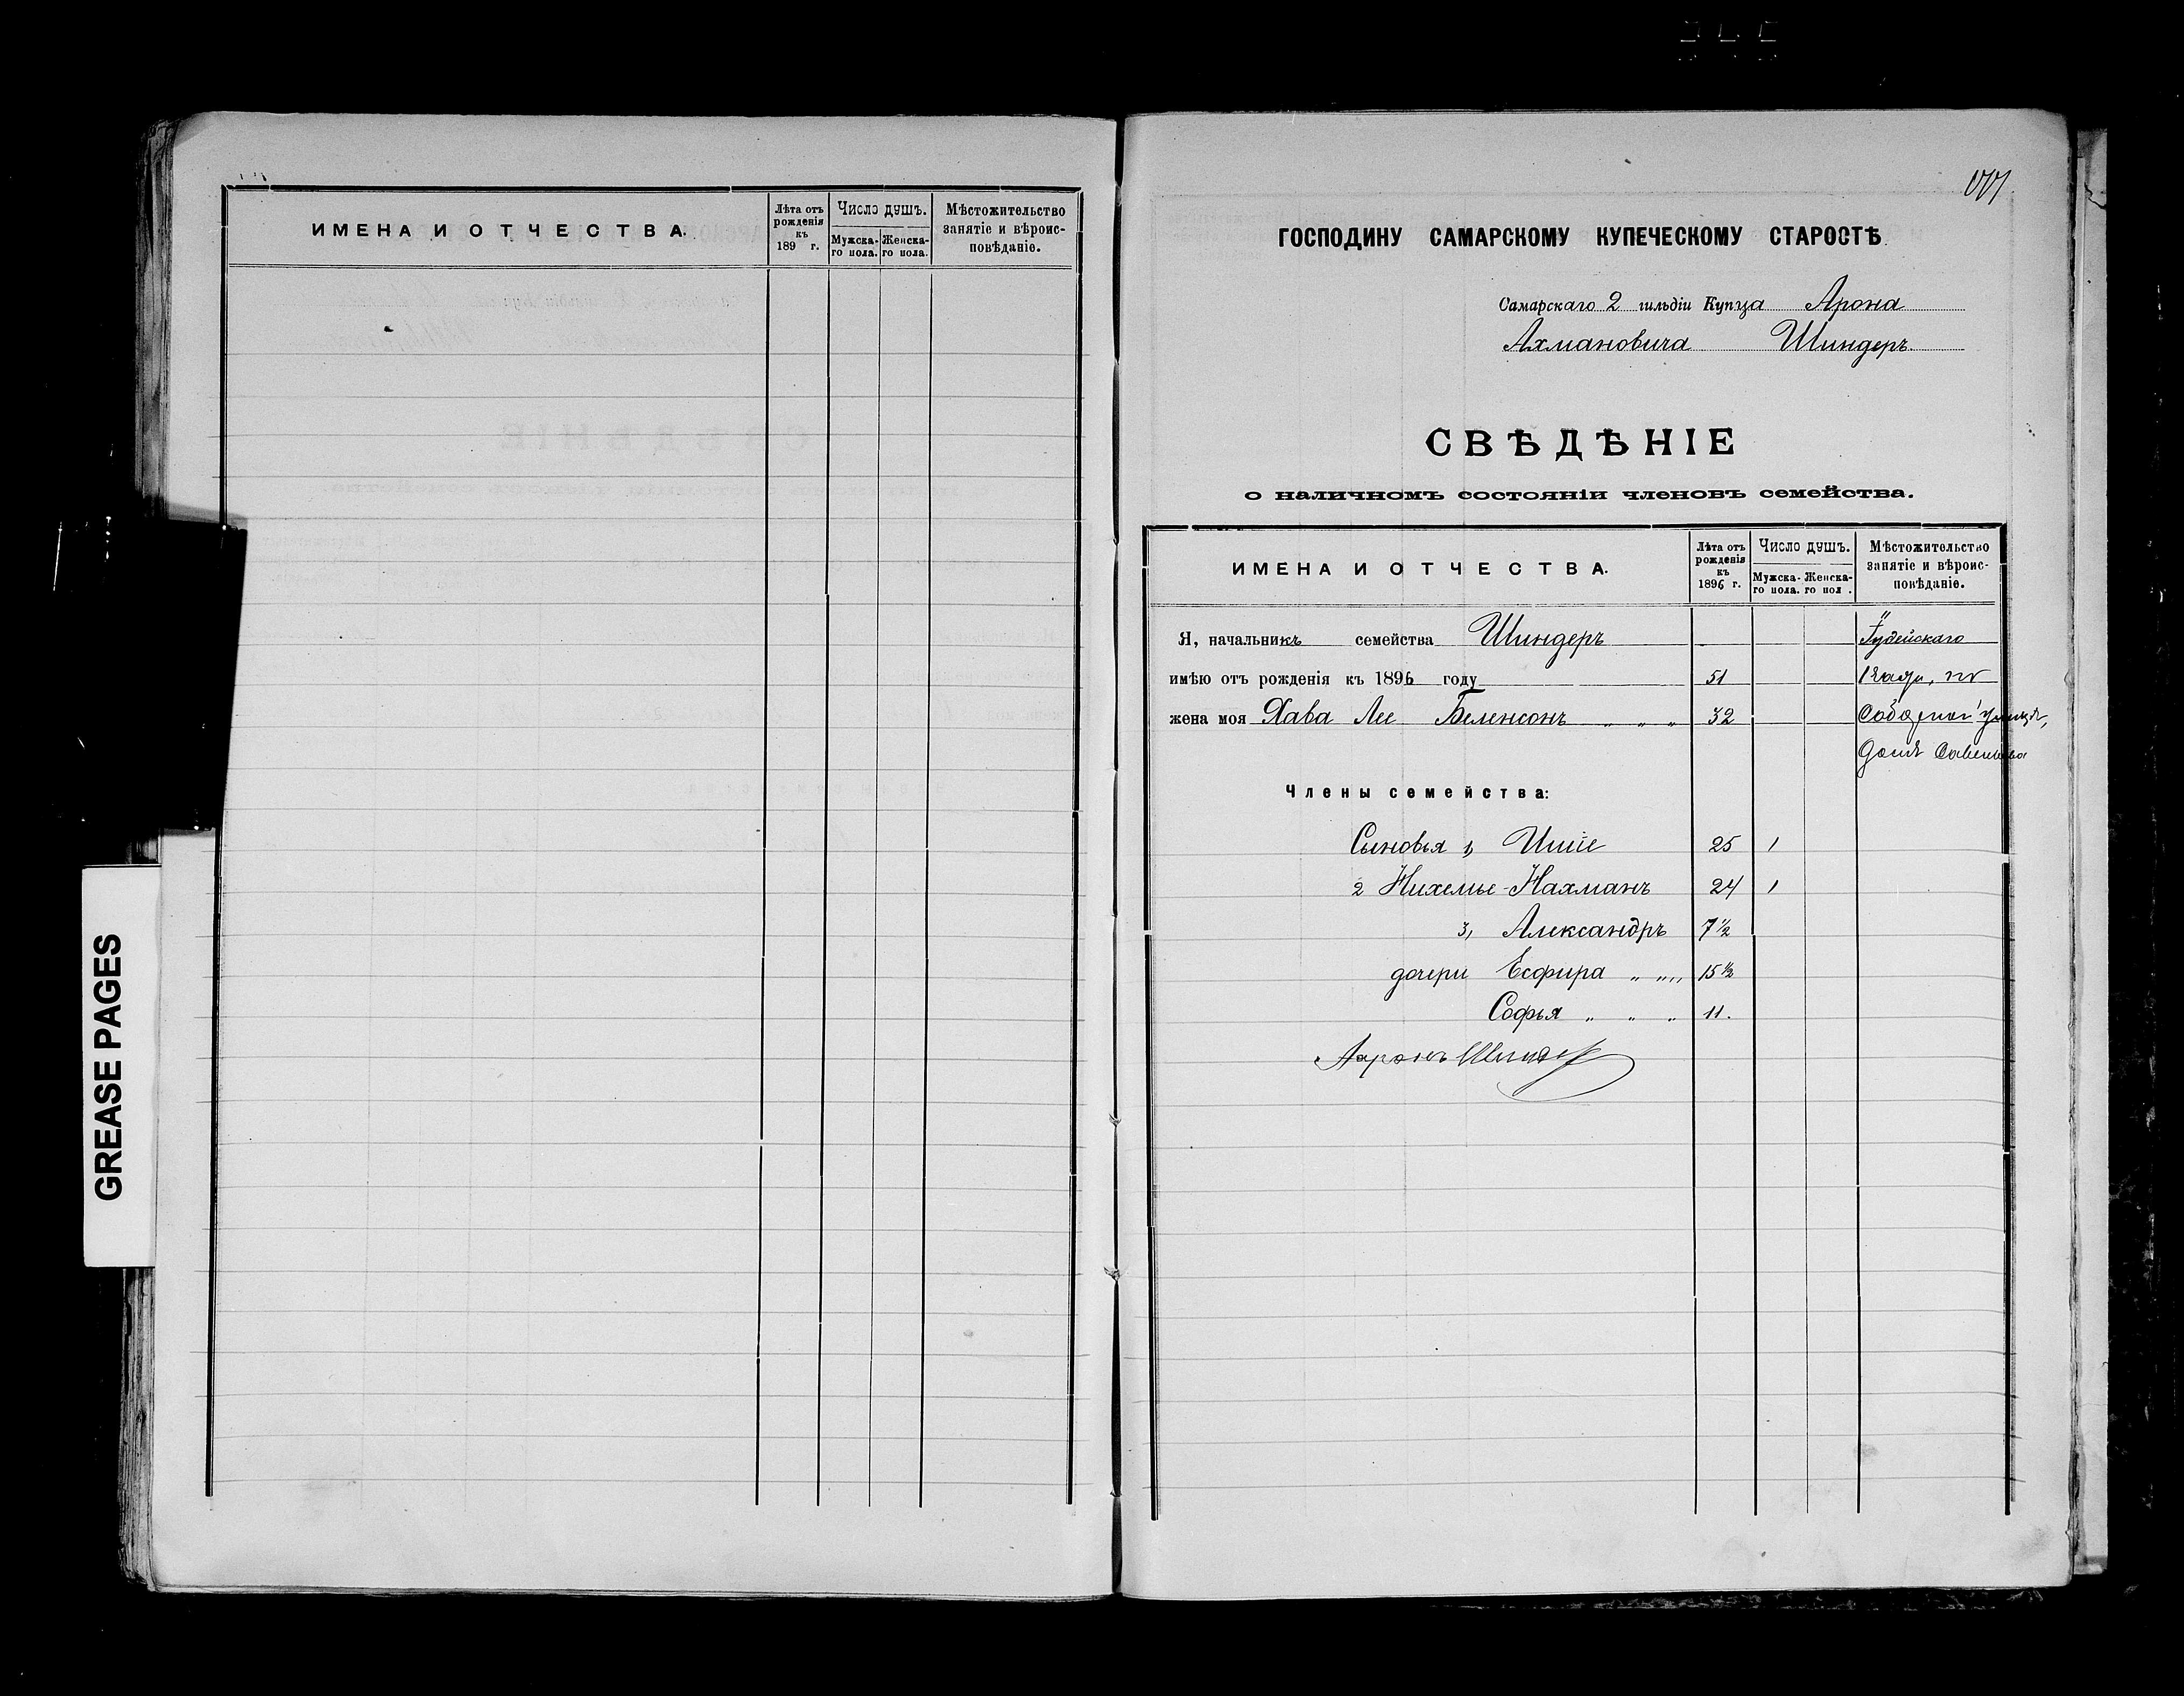 ИМЕНА И ОТЧЕСТВА.
Лѣта отъ рожденія къ 189 г.
Число душъ.
Мужска-го пола.
Женска-го пола.
Мѣстожительство занятіе и вѣроис-повѣданіе.
GREASE PAGES
ГОСПОДИНУ САМАРСКОМУ КУПЕЧЕСКОМУ СТАРОСТѢ
Самарскаго 2 гильдіи Купца Арона
Ахмановича Шиндеръ.
СВѢДѢНІЕ
о наличномъ состояніи членовъ семейства.
ИМЕНА И ОТЧЕСТВА.
Лѣта отъ рожденія къ 1896 г.
Число душъ.
Мужска-го пола.
Женска-го пол .
Мѣстожительство занятіе и вѣроис-повѣданіе.
Я, начальникъ семейства Шиндеръ Іудейскаго
имѣю отъ рожденія къ 1896 году 51
жена моя Хава Лее Беленсонъ " " " 32
домъ
Члены семейства:
Сыновья 1, Ишіе 25 1
2 Нихемье-Нахманъ 24 1
3, Александръ 7 1/2
дочери Есфира " " " 15 1/2
Софья " " " 11.
Ааронъ Шиндер